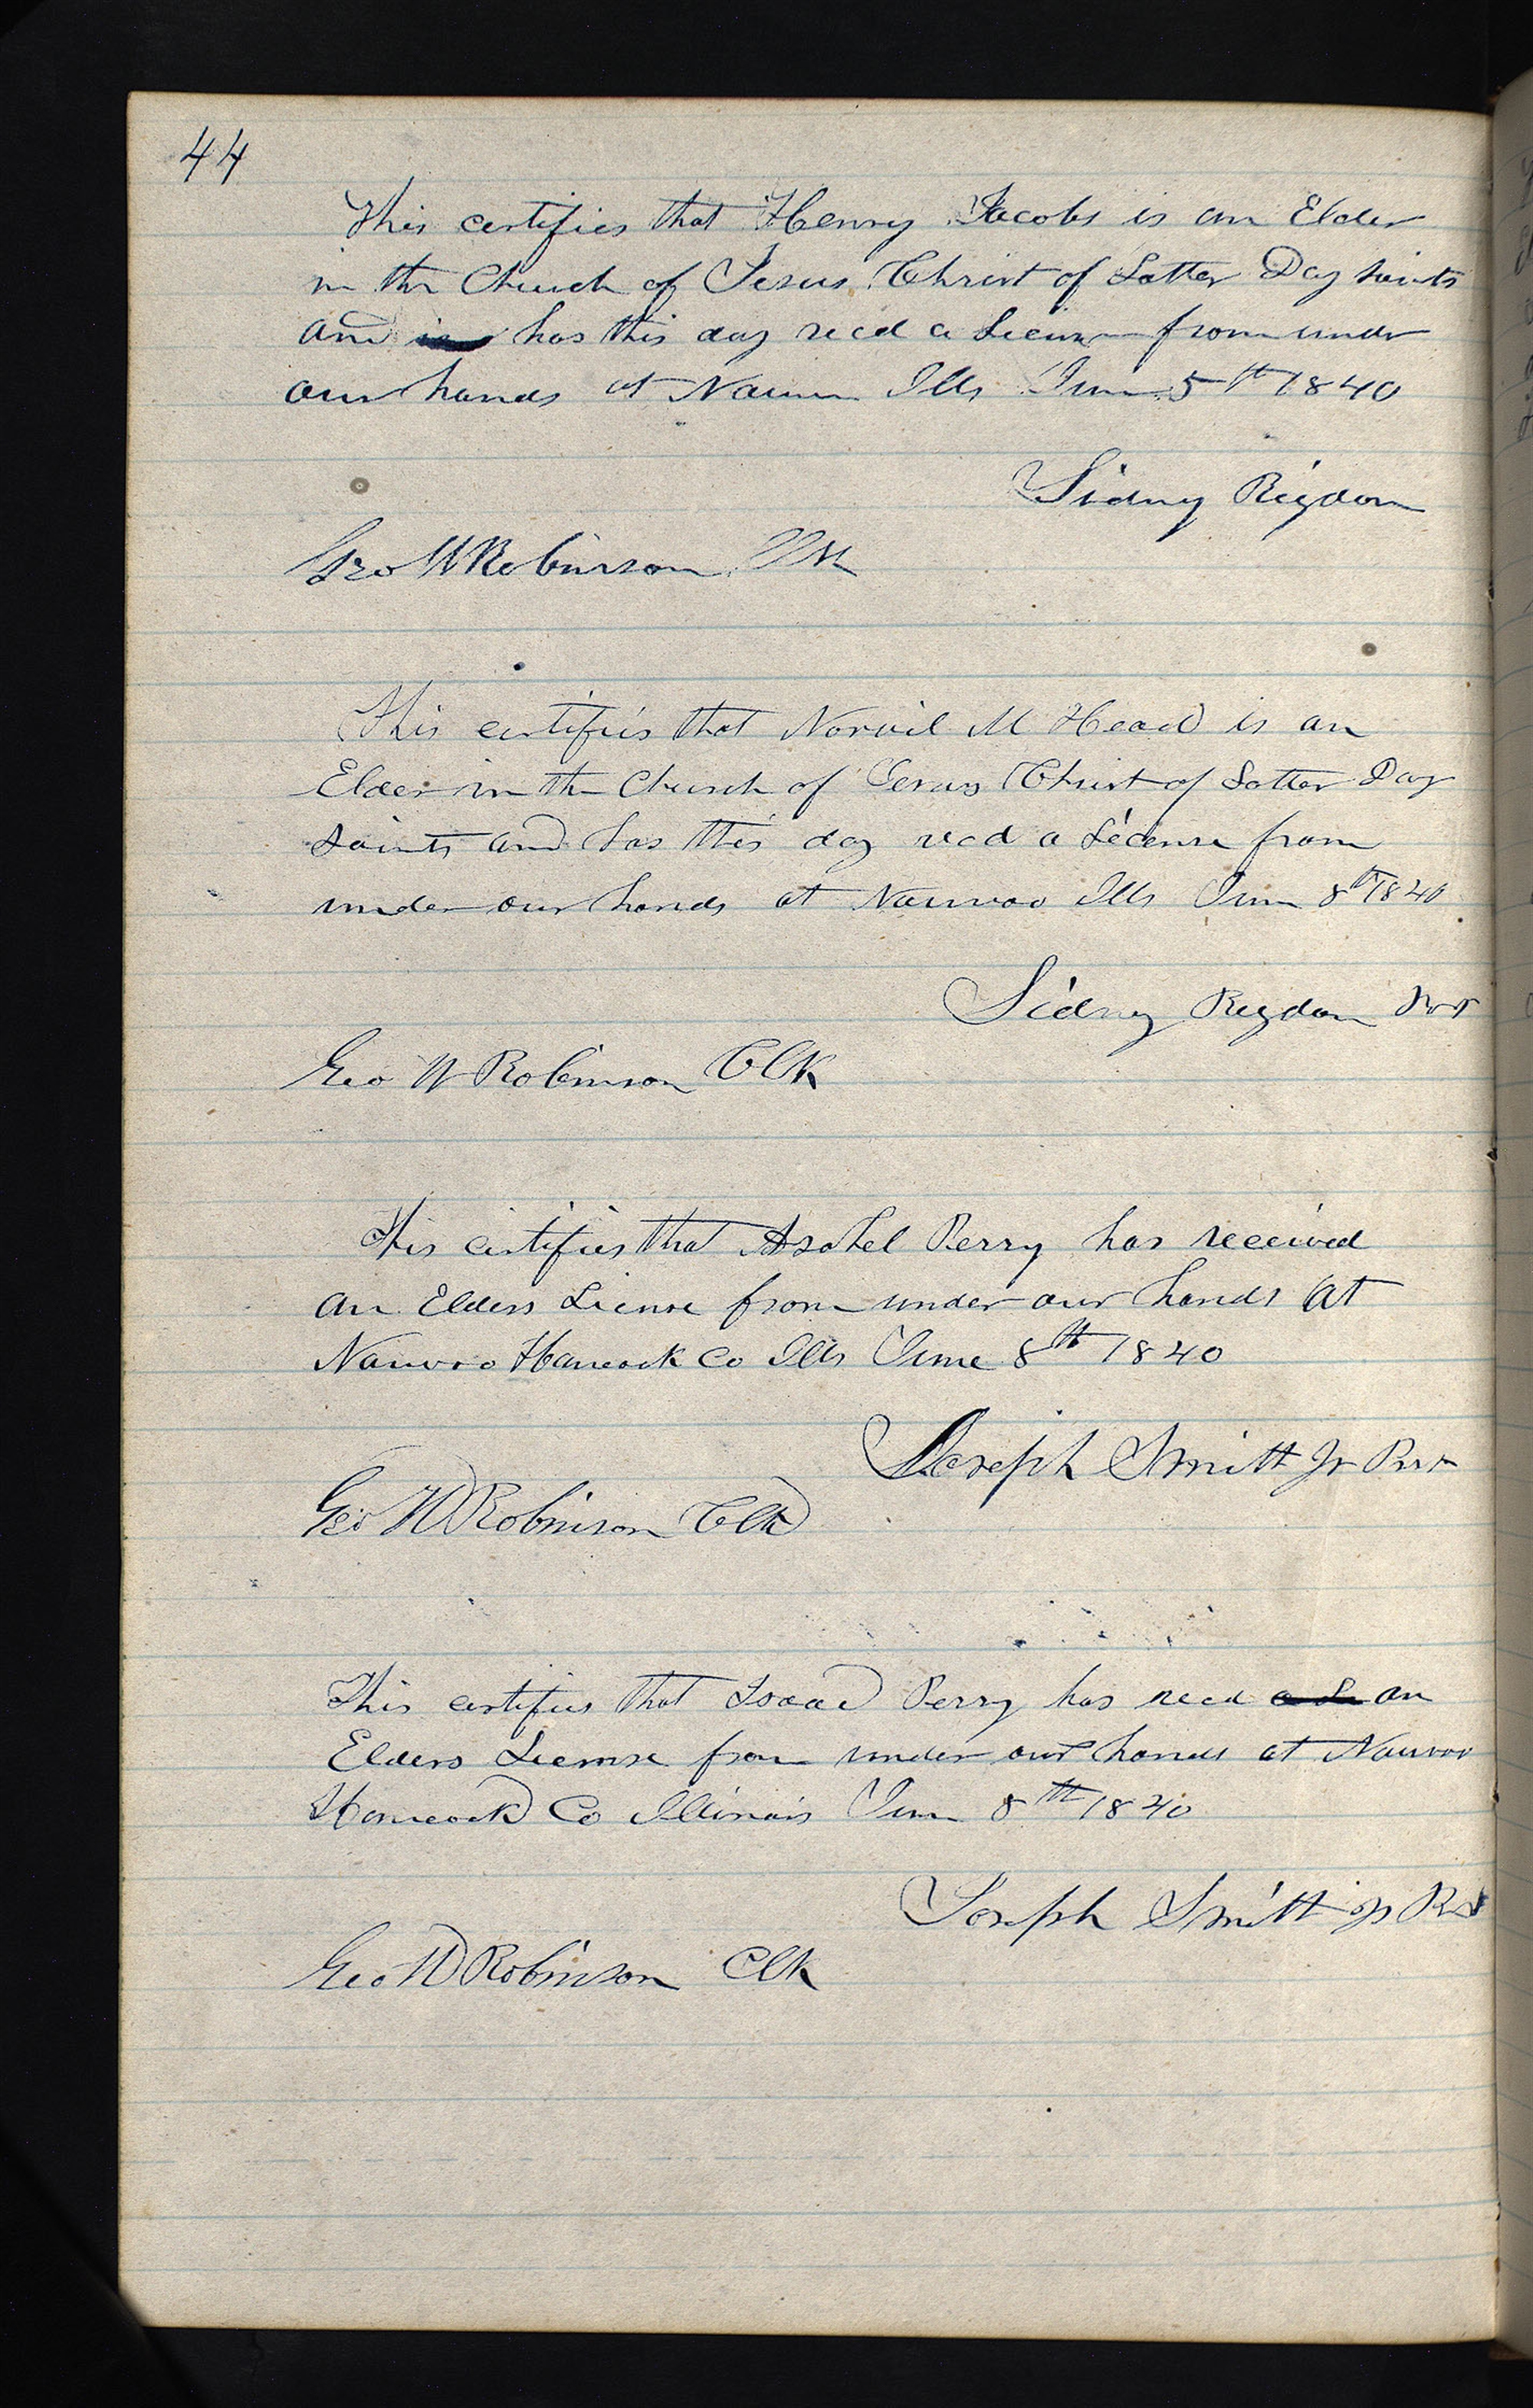 44
This certifies that Henry Jacobs is an Elder
in the Church of Jesus Christ of Latter Day Saints
and is has this day recd a License from under
our hands at Nauvoo Ills June 5th 1840
Sidney Rigdon
Geo W Robinson Clk
This certifies that Norvil M Head is an
Elder in the Church of Jesus Christ of Latter Day
Saints and has this day recd a License from
under our hands at Nauvoo Ills June 8th 1840
Sidney Rigdon
Geo W Robinson Clk
This certifies that Asahel Perry has received
an Elders License from under our hands at
Nauvoo Hancock Co Ills June 8th 1840
Joseph Smith Jr
Geo W Robinson Clk
This certifies that Isaac Perry has recd a Li an
Elders License from under our hands at Nauvoo
Hancock Co Illinois June 8th 1840
Joseph Smith Jr
Geo W Robinson Clk